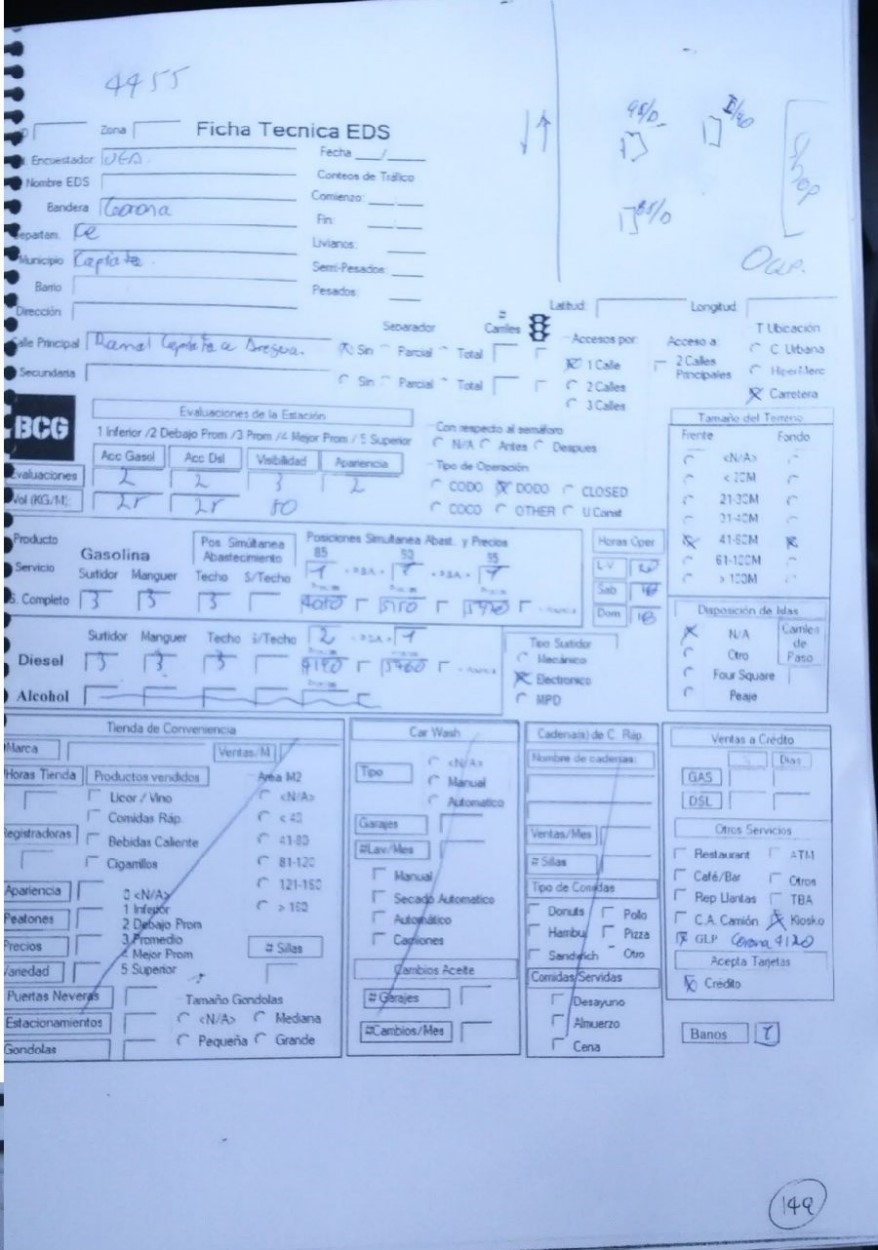 4455
Zona
Ficha Tecnica EDS
95/D
Shop
Encuestador
Fecha ___/___
Nombre EDS
Conteos de Tráfico
Bandera Corona
Comienzo:
85/D
Fin:
Departan.
Livianos:
Municipio Capiata.
Semi-Pesados:
Barrio
Pesados:
Dirección
Latitud:
Longitud:
Separador
# Carriles
Accesos por:
Acceso a
T Ubicación
Calle Principal Ramal Capiata a
Sin Parcial Total
1 Calle
2 Calles Principales
C. Urbana
HiperMerc
Secundaria
Sin Parcial Total
2 Calles
Carretera
3 Calles
BCG
Evaluaciones de la Estación
1 Inferior /2 Debajo Prom /3 Prom /4 Mejor Prom / 5 Superior
Con respecto al semáforo
N/A Antes Despues
Tamaño del Terreno
Frente Fondo
Acc Gasol Acc Dsl Visibilidad Apariencia
Tipo de Operación
<N/A>
Evaluaciones 2 2 3 2
CODO DODO CLOSED
< 20M
Vol (KG/M): 25 25 80
COCO OTHER U Const
21-30M
31-40M
41-60M
61-100M
> 100M
Producto
Gasolina
Pos. Simúltanea Abastecimiento
Posiciones Simultanea Abast. y Precios
85 90 95
Horas Oper
Servicio
1 1 1
L-V
Surtidor Manguer Techo S/Techo
Sab 18
S. Completo 3 3 3
Dom 18
Disposición de Islas
N/A
Carriles de Paso
Otro
Four Square
Peaje
Surtidor Manguer Techo S/Techo 2 1
Tipo Surtidor
Mecánico
Diesel 3 3 3
Electronico
Alcohol
MPD
Tienda de Conveniencia
Car Wash
Cadena(s) de C. Ráp.
Ventas a Crédito
Marca
Ventas/M
Nombre de cadenas:
Dias
Horas Tienda
Productos vendidos
Area M2
Tipo
<N/A>
GAS
Licor / Vino
<N/A>
Manual
DSL
Comidas Ráp.
< 40
Automatico
Registradoras
Bebidas Caliente
41-80
Garajes
Ventas/Mes
Otros Servicios
Cigarrillos
81-120
#Lav/Mes
# Sillas
Restaurant ATM
Apariencia
0 <N/A>
121-160
Manual
Tipo de Comidas
Café/Bar Otros
1 Inferior
> 160
Secado Automatico
Donuts Pollo
Rep Llantas TBA
Peatones
2 Debajo Prom
Automático
Hambu Pizza
C.A. Camión Kiosko
Precios
3 Promedio
# Sillas
Camiones
Sandwich Otro
GLP Corona 4120
4 Mejor Prom
Variedad
5 Superior
Cambios Aceite
Comidas Servidas
Acepta Tarjetas
Puertas Neveras
Tamaño Gondolas
# Garajes
Desayuno
Crédito
Estacionamientos
<N/A> Mediana
#Cambios/Mes
Almuerzo
Banos
Gondolas
Pequeña Grande
Cena
149